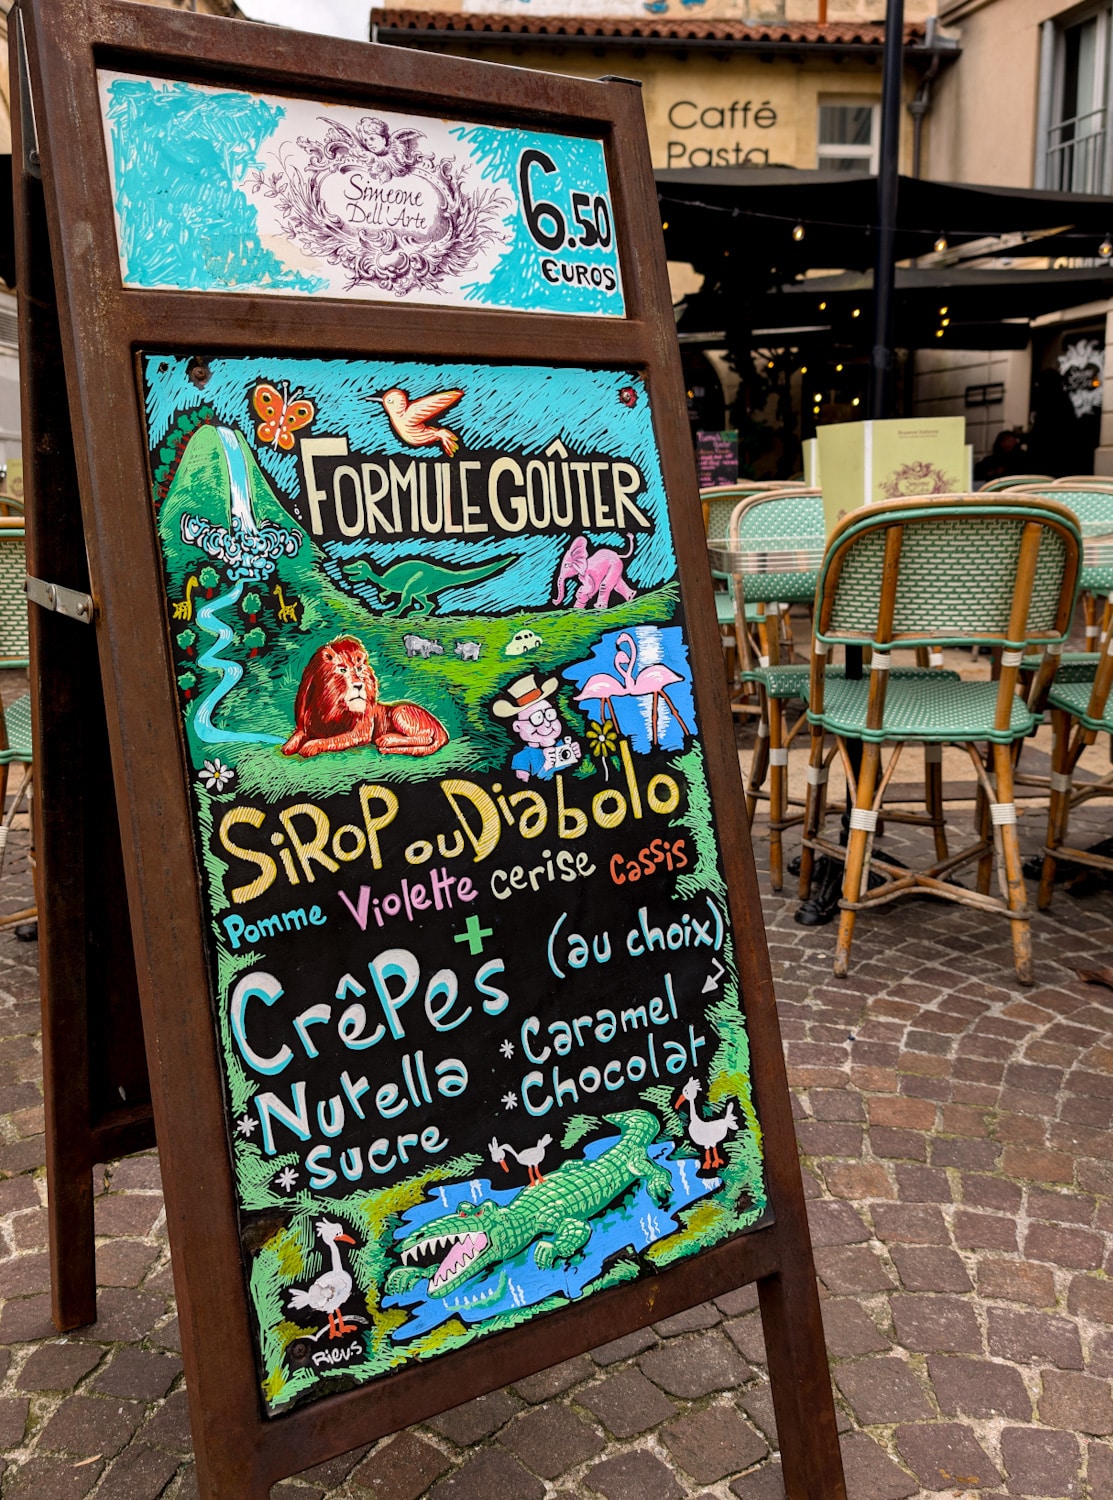 Caffé
Pasta
Simeone
Dell'Arte
6.50
EUROS
FORMULE GOÛTER
SiROP ou Diabolo
Pomme Violette cerise Cassis
+
Crêpes (au choix)
* Nutella
* Caramel
* sucre
* Chocolat
Riev.s